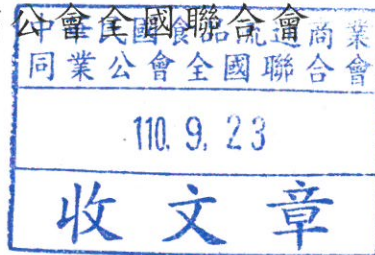 公會全國聯合會
中華民國食品流通商業
同業公會全國聯合會
110. 9. 23
收文章